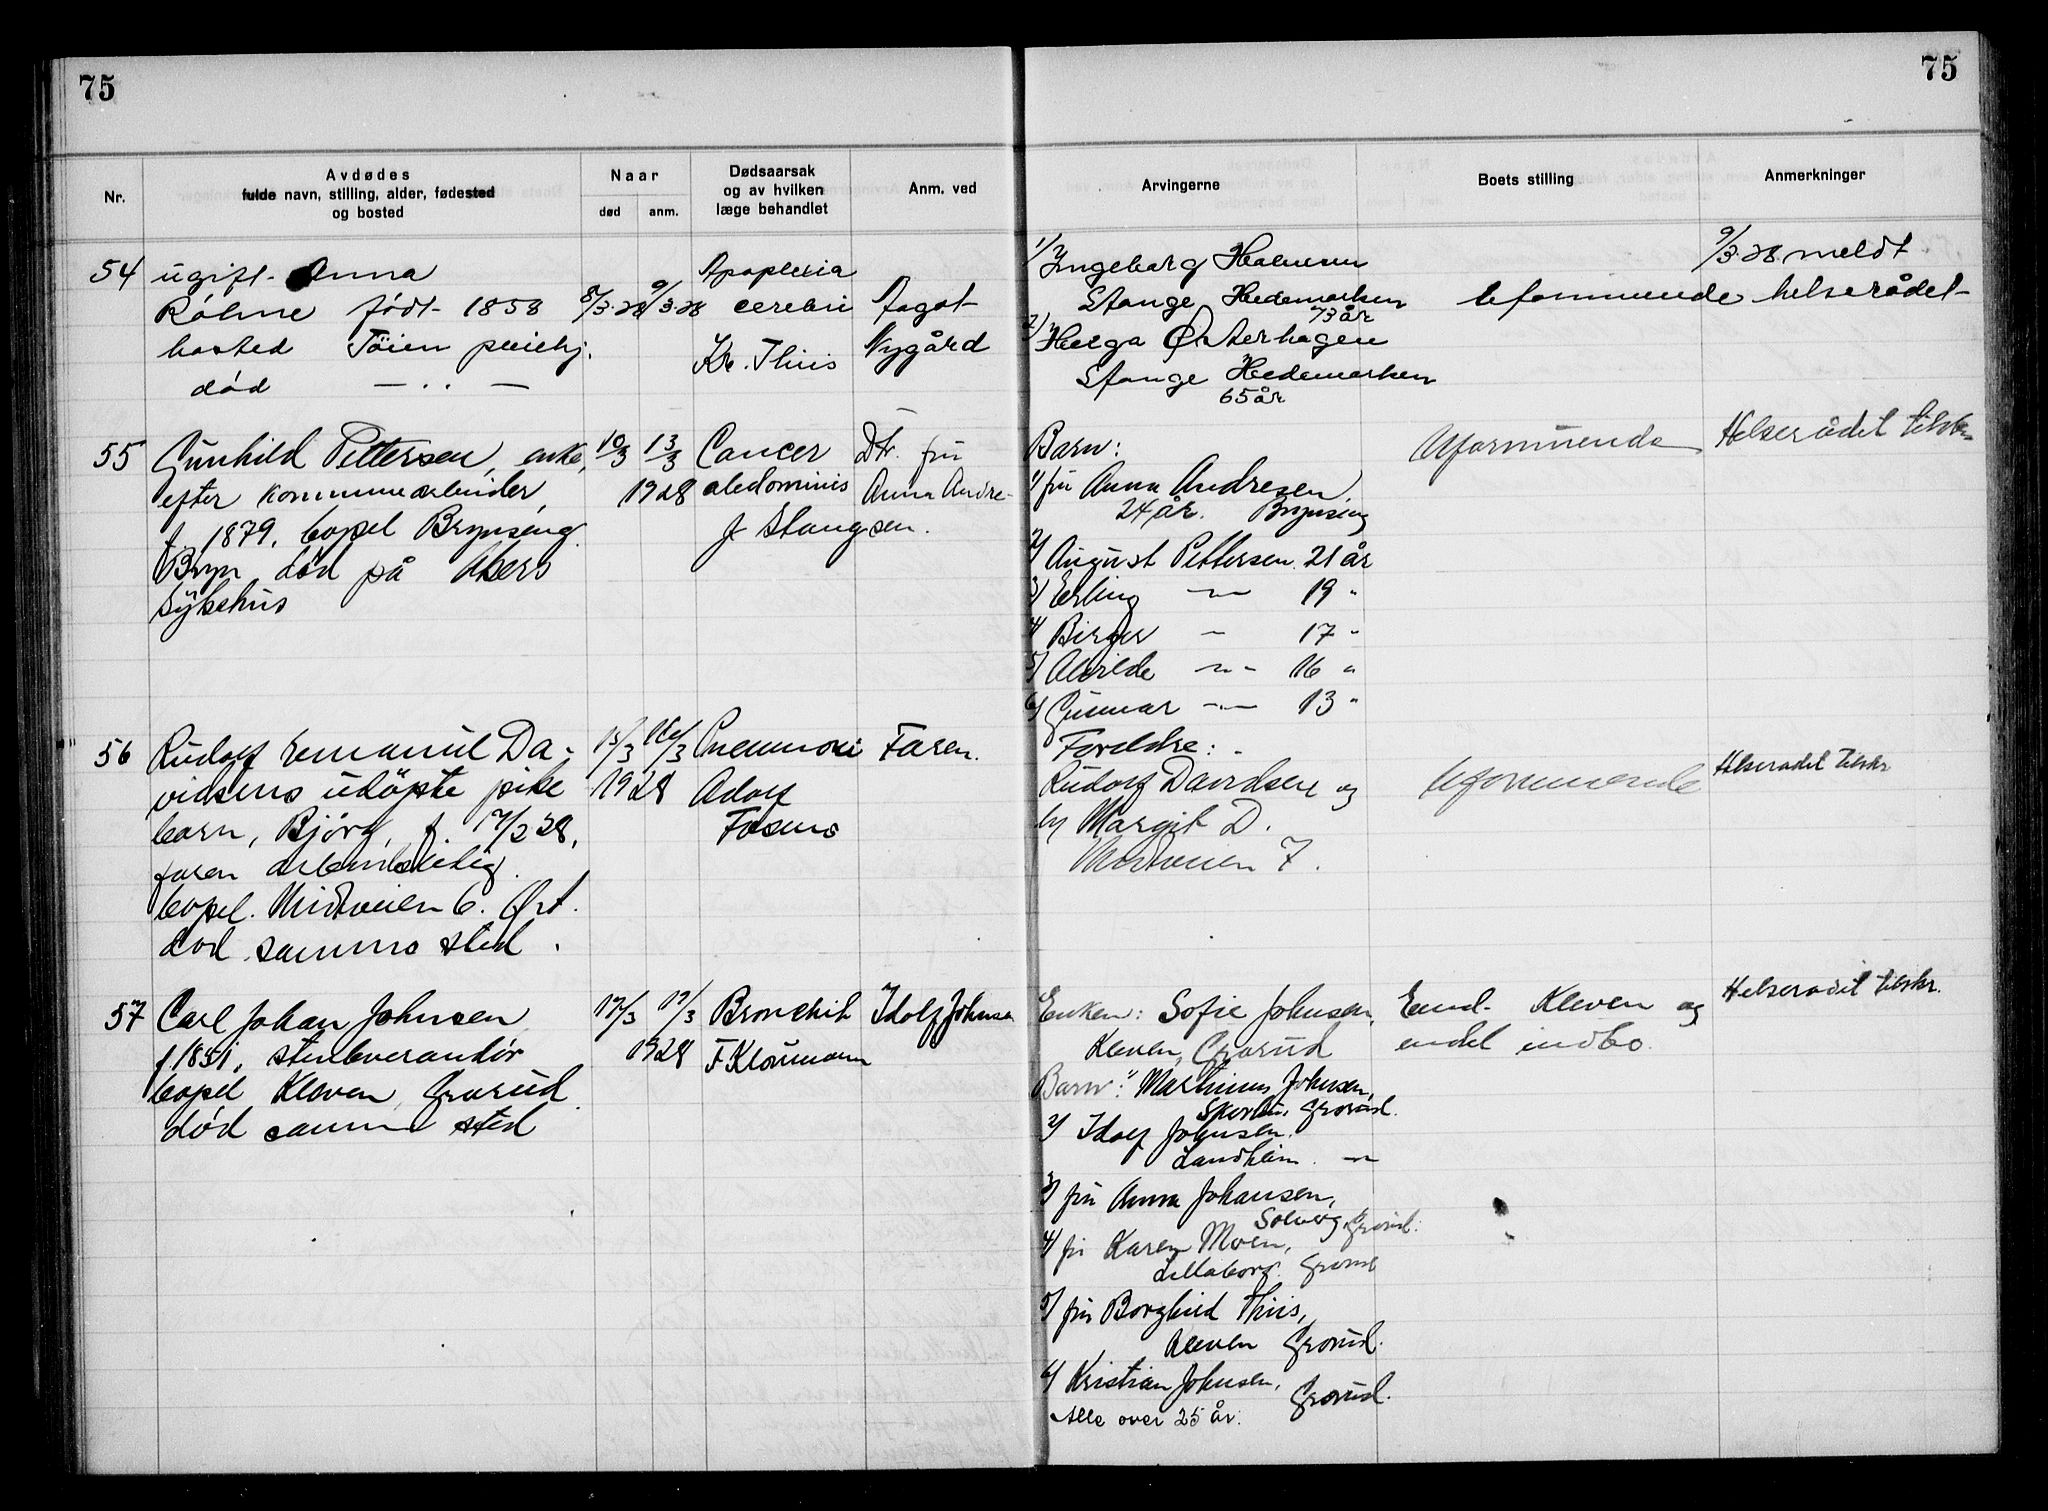 75
75
Nr.
Avdødes
fulde navn, stilling, alder, fødested
og bosted
Naar
død
anm.
Dødsaarsak
og av hvilken
læge behandlet
Anm. ved
Arvingerne
Boets stilling
Anmerkninger
54
ugift. Anna
Røhne født 1858
bosted Töien pleiehj.
død — . . —
8/3-28
9/3-28
Apoplexia
cerebri
Kr. Thiis
Fogot
Nygård
1/ Ingeborg Halvesen
Stange Hedemarken
73 år
2/ Helga Østerhagen
Stange Hedemarken
65 år
Uformuende
9/3-28 meldt
helserådet
55
Gunhild Pettersen, enke,
efter kommunearbeider,
f. 1879, bopel Brynseng
Bryn, död på Akers
Sykehus
10/3
13/3
1928
Cancer
abdominis
J Stang
Dtr. fru
Anna Andre-
sen.
Barn:
1/ fru Anna Andresen,
24 år. Brynseng
2/ August Pettersen 21 år
3/ Erling —"— 19 "
4/ Birger — 17 "
5/ Alvilde —"— 16 "
6/ Gunnar —"— 13 "
Uformuende
Helserådet tilskr.
56
Rudolf Emanuel Da-
vidsens udöpte pike
barn, Bjørg, f. 17/2 28,
faren arbeidsledig.
bopel. Midtveien 6. Øst.
död samme sted.
15/3
16/3
1928
Pneumoni
Adolf
Fosmo
Faren.
Foreldre:
Rudolf Davidsen og
Margit D.
Midtveien 7.
Uformuende
Helserådet tilskr
57
Carl Johan Johnsen
f. 1851, stenleverandör
bopel Kleven, Grorud
död samme sted
17/3
19/3
1928
Bronchit
F Kloumann
Idolf Johnsen
Enken: Sofie Johnsen,
Kleven, Grorud
Barn: 1/ Martinius Johnsen,
Grorud.
2/ Idolf Johnsen.
Landheim. —"—
3/ fru Anna Johansen,
Solveig, Grorud.
4/ fr Karen Moen,
Lillaborg. Grorud
5/ fru Borghild Thiis,
Kleven Grorud.
6/ Kristian Johnsen,
Grorud.
Alle over 25 år.
Eiend. Kleven og
endel indbo.
Helserådet tilskr.